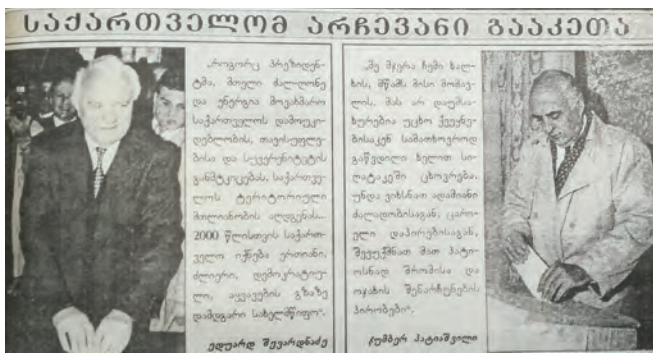 საქართველომ არჩევანი გააკეთა
„როგორც პრეზიდენ-
ტმა, მთელი ძალ-ღონე
და ენერგია მოვახმარო
საქართველოს დამოუკი-
დებლობის, თავისუფლე-
ბისა და სუვერენიტეტის
განმტკიცებას, საქართვე-
ლოს ტერიტორიული
მთლიანობის აღდგენას...
2000 წლისთვის საქართ-
ველო იქნება ერთიანი,
ძლიერი, დემოკრატიუ-
ლი, აყვავების გზაზე
დამდგარი სახელმწიფო“.
ედუარდ შევარდნაძე
„მე მჯერა ჩემი ხალ-
ხის, მწამს მისი მომავ-
ლის. მას არ დაუმსა-
ხურებია უცხო ქვეყნე-
ბისაკენ სამათხოვროდ
გაწვდილი ხელით სი-
ღატაკეში ცხოვრება.
უნდა ვიხსნათ ადამიანი
ძალადობისაგან, ცარი-
ელი დაპირებისაგან,
შევუქმნათ მათ პატი-
ოსნად შრომისა და
ოჯახის შენარჩუნების
პირობები“.
ჯუმბერ პატიაშვილი